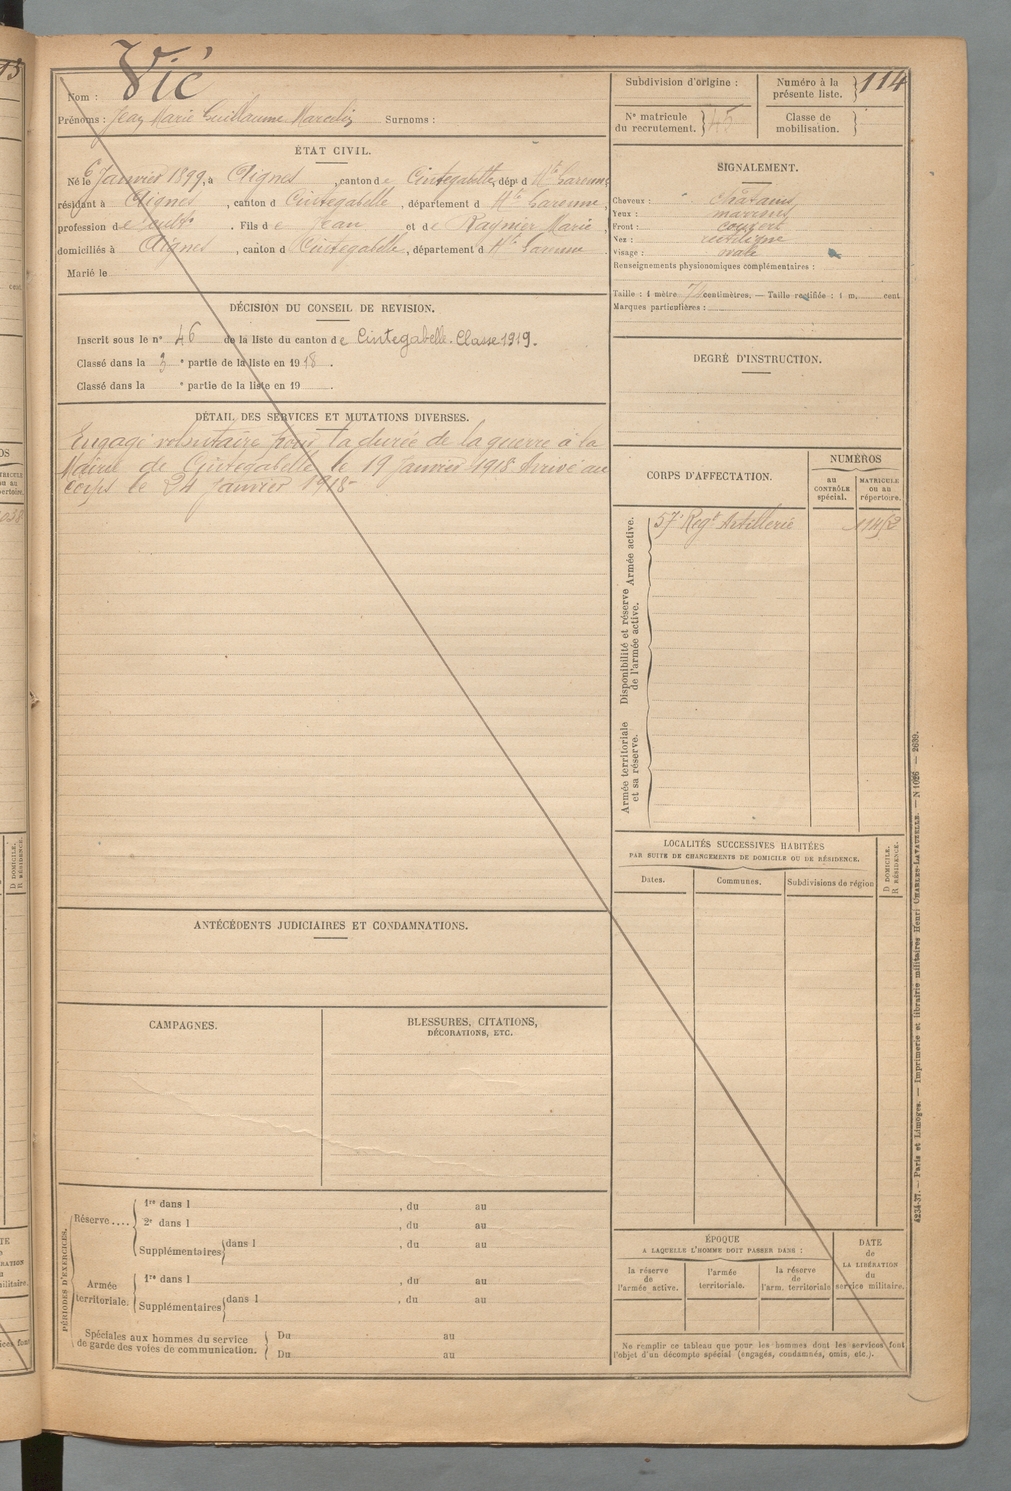 Nom : Vié
Prénoms : Jean Marie Guillaume Marcelin Surnoms :
Subdivision d'origine :
Numéro à la présente liste. } 114
N° matricule du recrutement. } 45
Classe de mobilisation. }
ÉTAT CIVIL.
Né le 6 Janvier 1899, à Aignes, canton de Cintegabelle, dépt d Hte Garonne,
résidant à Aignes, canton d Cintegabelle, département d Hte Garonne,
profession de cult. Fils de Jean et de Raynier Marie,
domiciliés à Aignes, canton d Cintegabelle, département d Hte Garonne
Marié le
SIGNALEMENT.
Cheveux : châtains
Yeux : marrons
Front : couvert
Nez : rectiligne
Visage : ovale
Renseignements physionomiques complémentaires :
Taille : 1 mètre centimètres. — Taille rectifiée : 1 m, cent
Marques particulières :
DÉCISION DU CONSEIL DE REVISION.
Inscrit sous le n° 46 de la liste du canton de Cintegabelle. Classe 1919.
Classé dans la 3 e partie de la liste en 1918.
Classé dans la e partie de la liste en 19 .
DEGRÉ D'INSTRUCTION.
DÉTAIL DES SERVICES ET MUTATIONS DIVERSES.
Engagé volontaire pour la durée de la guerre à la
Mairie de Cintegabelle le 19 Janvier 1918. Arrivé au
corps le 24 Janvier 1918-
CORPS D'AFFECTATION.
NUMÉROS
au CONTRÔLE spécial.
MATRICULE ou au répertoire.
Armée active.
57e Regt Artillerie
Disponibilité et réserve de l'armée active.
Armée territoriale et sa réserve.
LOCALITÉS SUCCESSIVES HABITÉES
PAR SUITE DE CHANGEMENTS DE DOMICILE OU DE RÉSIDENCE.
D DOMICILE.
R RÉSIDENCE.
Dates. Communes. Subdivisions de région
ANTÉCÉDENTS JUDICIAIRES ET CONDAMNATIONS.
CAMPAGNES.
BLESSURES, CITATIONS,
DÉCORATIONS, ETC.
PÉRIODES D'EXERCICES.
Réserve.... 1re dans l , du au
2e dans l , du au
Supplémentaires dans l , du au
Armée territoriale. 1re dans l , du au
Supplémentaires dans l , du au
Spéciales aux hommes du service
de garde des voies de communication.
Du au
Du au
ÉPOQUE
A LAQUELLE L'HOMME DOIT PASSER DANS :
la réserve de l'armée active.
l'armée territoriale.
la réserve de l'arm. territoriale
DATE de LA LIBÉRATION du service militaire.
Ne remplir ce tableau que pour les hommes dont les services font
l'objet d'un décompte spécial (engagés, condamnés, omis, etc.).
4234-37. — Paris et Limoges. — Imprimerie et librairie militaires Henri CHARLES-LAVAUZELLE. — N 1026 — 2639.